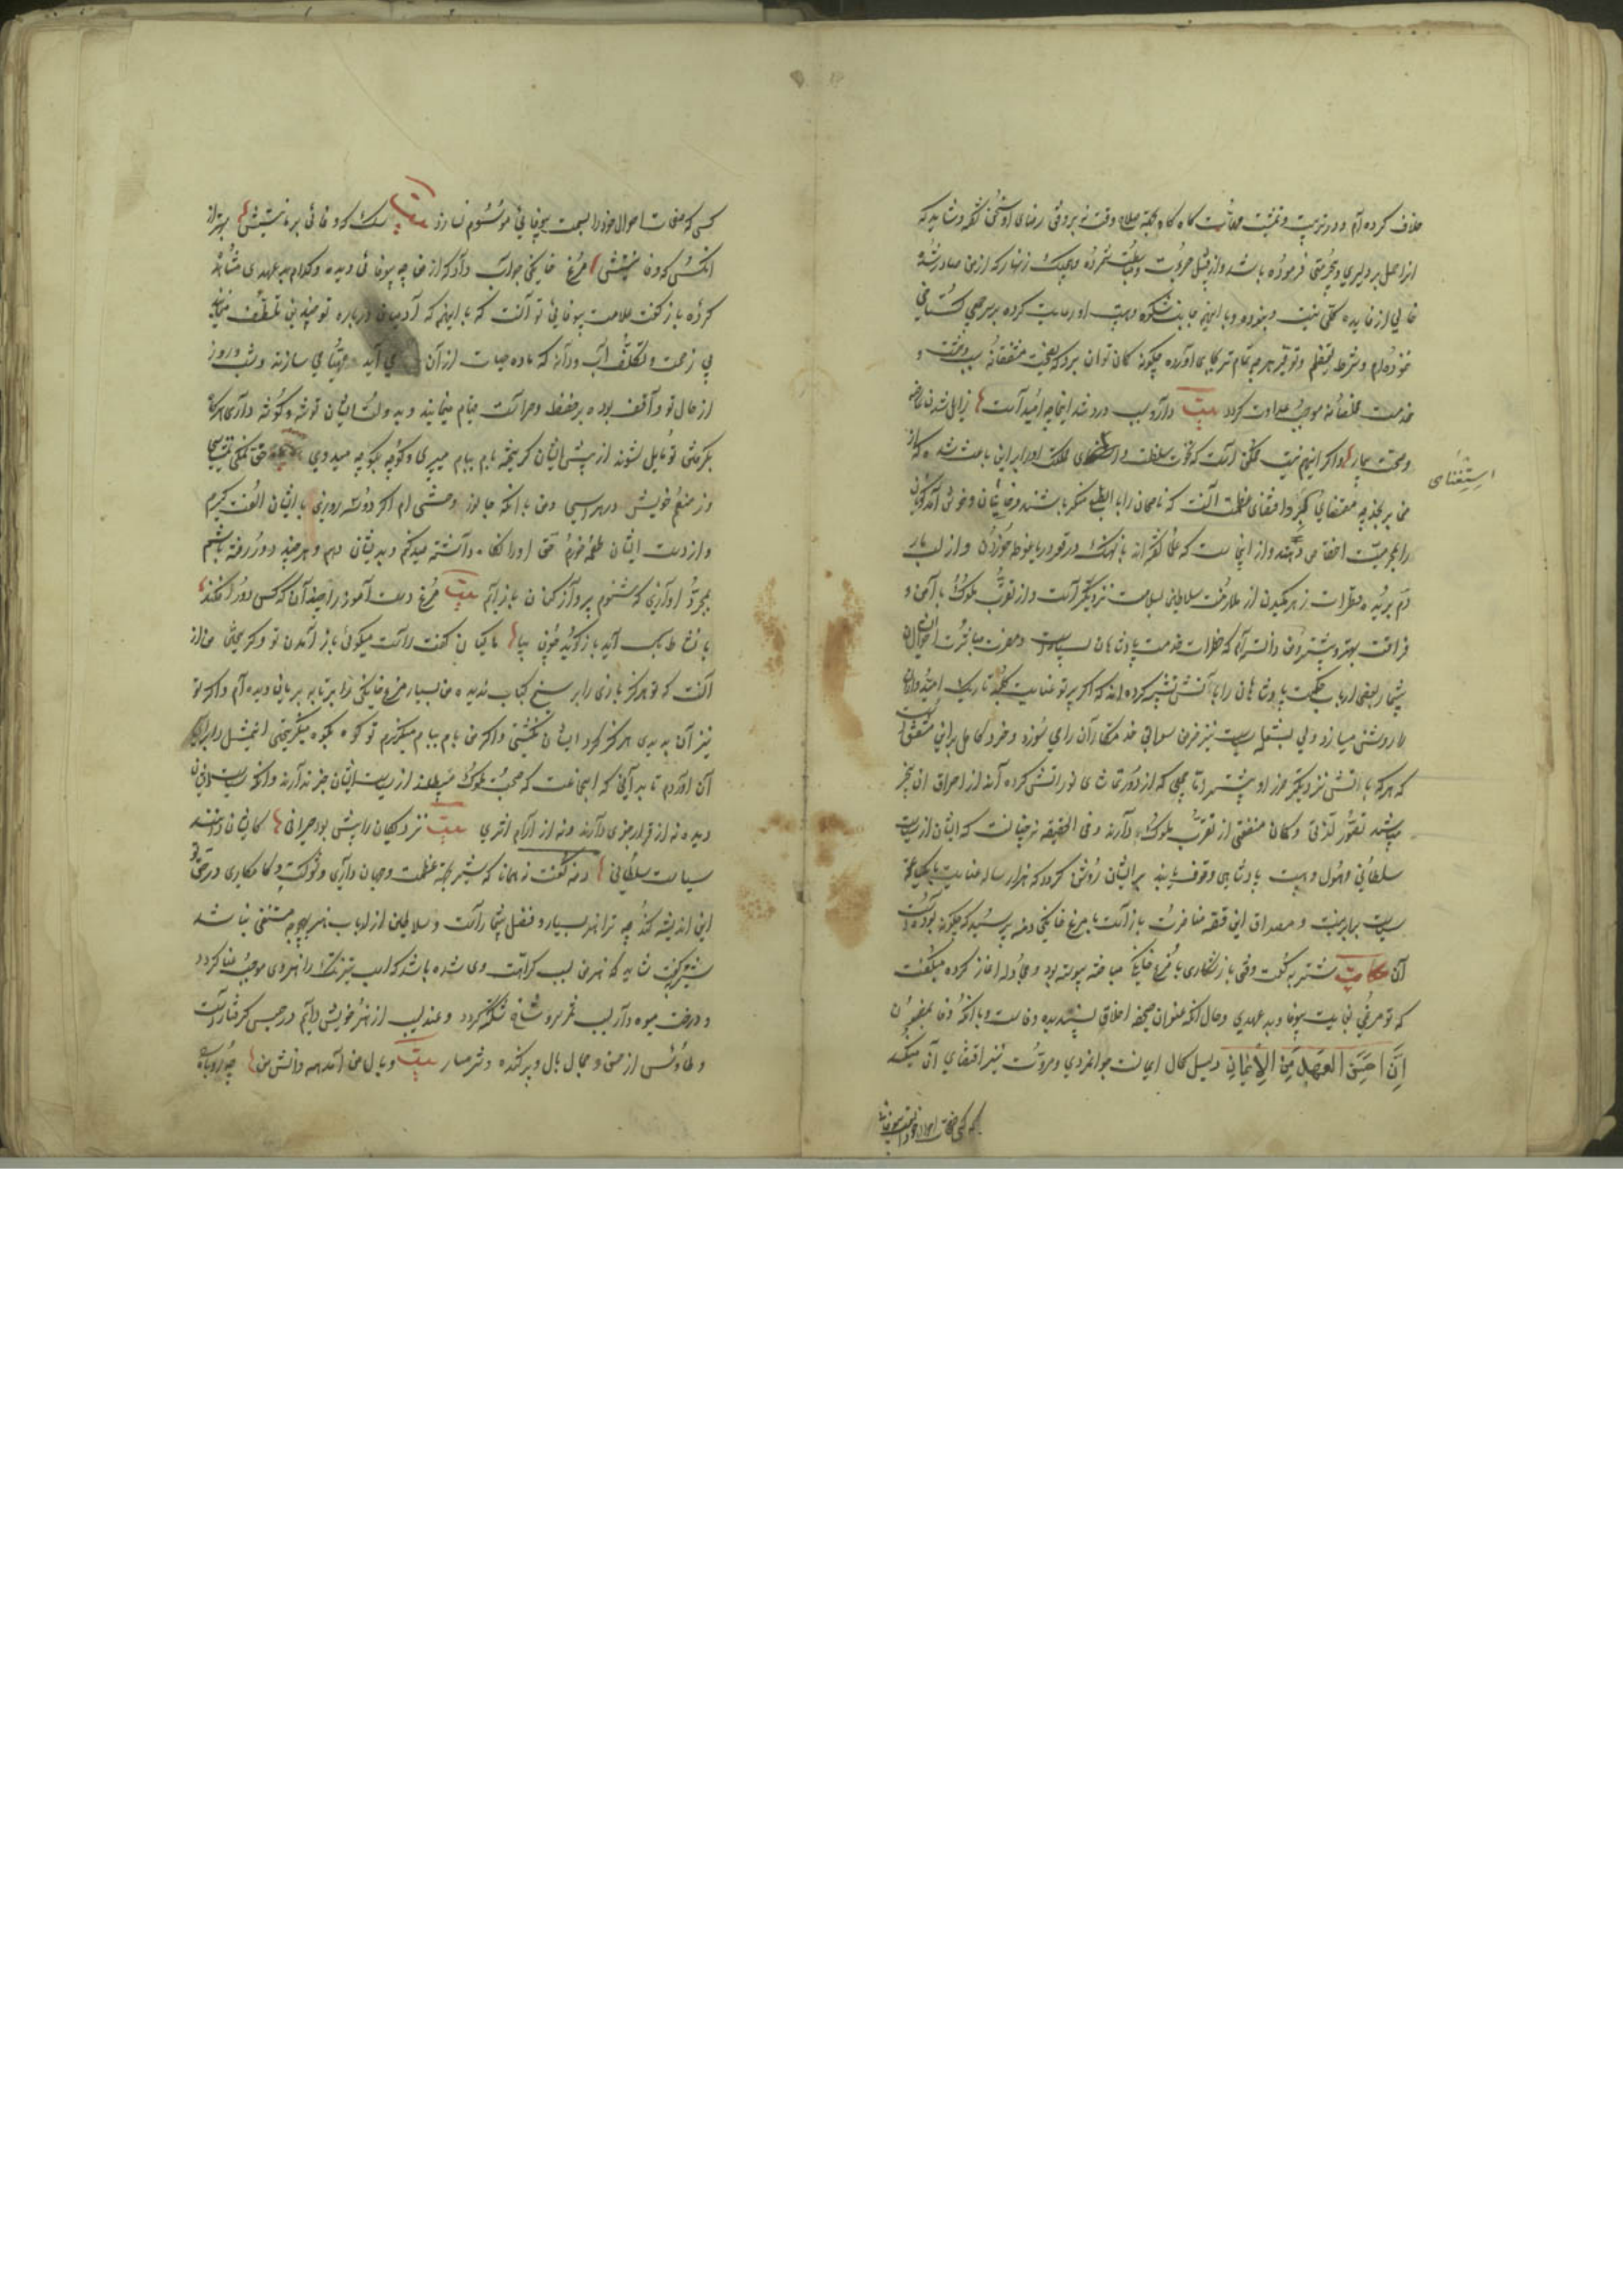 خلاف کرده‌ام و در تربیت و تمشیت مهمات گاه گاه بجهة صلاح وقت نه بر وفق رضای او سخنی گفته و شاید که
انرا حمل بر دلیری و بیحرمتی فرموده باشد و از قبیل جرأت شمرده و هیچیک از اینها که از من صادر شده
خالی از فایده کلی نیست و با اینهمه جانب شکوه و هیبت او رعایت کرده بر سر جمع گستاخی
ننموده‌ام و شرط تعظیم و توقیر هر چه تمام‌تر بجای آورده چگونه گمان توان برد که نصیحت مشفقانه سبب وحشت و
خدمت مخلصانه موجب عداوت گردد بیت دارو سبب درد شد اینجا چه امیدست زایل شدن عارضه
و صحت بیمار و اگر اینهم نیست ممکن است که نخوت سلطنت و استغنای مملکت او را بر این باعث شده که از
استغنای
من برنجد چه مقتضای تجبر و عظمت آنست که ناصحان را بالطبع منکر باشند و خاینان و خوش آمد گویان
را بمحرمیت اختصاص دهند و از اینجاست که علما گفته‌اند با نهنگ در قعر دریا غوطه خوردن و از لب مار
دم بریده قطرات زهر مکیدن از ملازمت سلاطین بسلامت نزدیکتر است و از تقرب ملوک با امن و
فراغت بهتر و بیشتر و من دانسته‌ام که خطرات خدمت پادشاهان بسیارست و مضرت مباشرت احوال ایشان
بیشمار بعضی ارباب حکمت پادشاهان را بآتش تشبیه کرده‌اند که اگر چه پرتو عنایت کلبه تاریک امیدواران
را روشنی میسازد ولی بشعله سیاست نیز خرمن سوابق خدمتکاران را می سوزد و خرد کامل بر این متفق است
که هر که بآتش نزدیکتر ضرر او بیشتر اما جمعی که از دور تماشای نور آتش کرده‌اند از احراق آن بیخبر
میباشند تصور لذتی و گمان منفعتی از تقرب ملوک دارند و فی الحقیقه نه چنانست که ایشان از سیاست
سلطانی و هول و هیبت پادشاهی وقوف یابند بر ایشان روشن گردد که هزار ساله عنایت با یکساعته
سیاست برابر نیست و مصداق این قصه مناظرت باز است با مرغ خانگی دمنه پرسید که چگونه بوده است
آن حکایت شنزبه گفت وقتی باز شکاری با مرغ خانگی مباحثه پیوسته بود و مجادله آغاز کرده میگفت
که تو مرغی بغایت بیوفا و بدعهدی و حال آنکه عنوان صحیفه اخلاق پسندیده وفاست و با آنکه وفا بمضمون
اِنَّ حُسْنَ العَهْدِ مِنَ الْاِیمَانِ دلیل کمال ایمانست جوانمردی و مروت نیز اقتضای آن میکند
که کسی صفحات احوال خود را بسمت بیوفائی
کسی که صفحات احوال خود را بسمت بیوفائی موسوم نسازد بیت سگ که وفائی بر ما نیستش بهتر از
انکس که وفا نیستش مرغ خانگی جواب داد که از من چه بیوفائی دیده و کدام بدعهدی مشاهده
کرده باز گفت علامت بیوفائی تو آنست که با اینهمه که آدمیان درباره تو چندین تلطف مینمایند
بی زحمت و تکلف آب و دانه که ماده حیات از آن می آید مهیا می سازند و شب و روز
از حال تو واقف بوده بر حفظ و حراست قیام مینمایند و بدولت ایشان توشه و گوشه داری هرگاه
بگرفتن تو مایل شوند از پیش ایشان گریخته بام ببام میپری و کوچه بکوچه میدوی بیت حق نمک نشناسی
وز منعم خویش در هراسی و من با آنکه جانور وحشی ام اگر دو سه روزی با ایشان الفت گیرم
و از دست ایشان طعمه خورم حق آنرا نگاه داشته صید کنم و بدیشان دهم و هر چند دور رفته باشم
بمجرد آوازی که شنوم پرواز کنان باز آیم بیت مرغ دست آموز را چندانکه کس دور افکند
بانشاط آید باز گوید چون بیا ماکیان گفت راست میگوئی باز آمدن تو و گریختن من از
آنست که تو هرگز بازی را بر سیخ کباب ندیده و من بسیار مرغ خانگی را بر تابه بریان دیده‌ام و اگر تو
نیز آن بدیدی هرگز گرد ایشان نگشتی و اگر من بام ببام میگریزم تو کوه بکوه میگریختی این مثل را برای
آن آوردم تا بدانی که آن جماعت که صحبت ملوک میطلبند از سیاست ایشان خبر ندارند و آنکه سیاست ایشان
دیده نه از قرار خبری دارند و نه از آرام اثری بیت نزدیکان را بیش بود حیرانی کایشان دانند
سیاست سلطانی دمنه گفت نه همانا که شیر بجهة عظمت و جهانداری و شوکت و کامکاری در حق تو
این اندیشه کند چه ترا هنر بسیار و فضل بیشمار است و سلاطین از ارباب هنر بهیچوجه مستغنی نباشند
شنزبه گفت شاید که هنر من سبب کراهت وی شده باشد که اسب تیزتک را هنر وی موجب عنا گردد
و درخت میوه دار بسبب ثمر بر وی شاخ شکسته گردد و عندلیب از هنر خویش دایم در حبس گرفتار است
و طاوس از حسن و جمال بال و پر کنده و شرمسار بیت وبال من آمد همه دانش من چو روباه